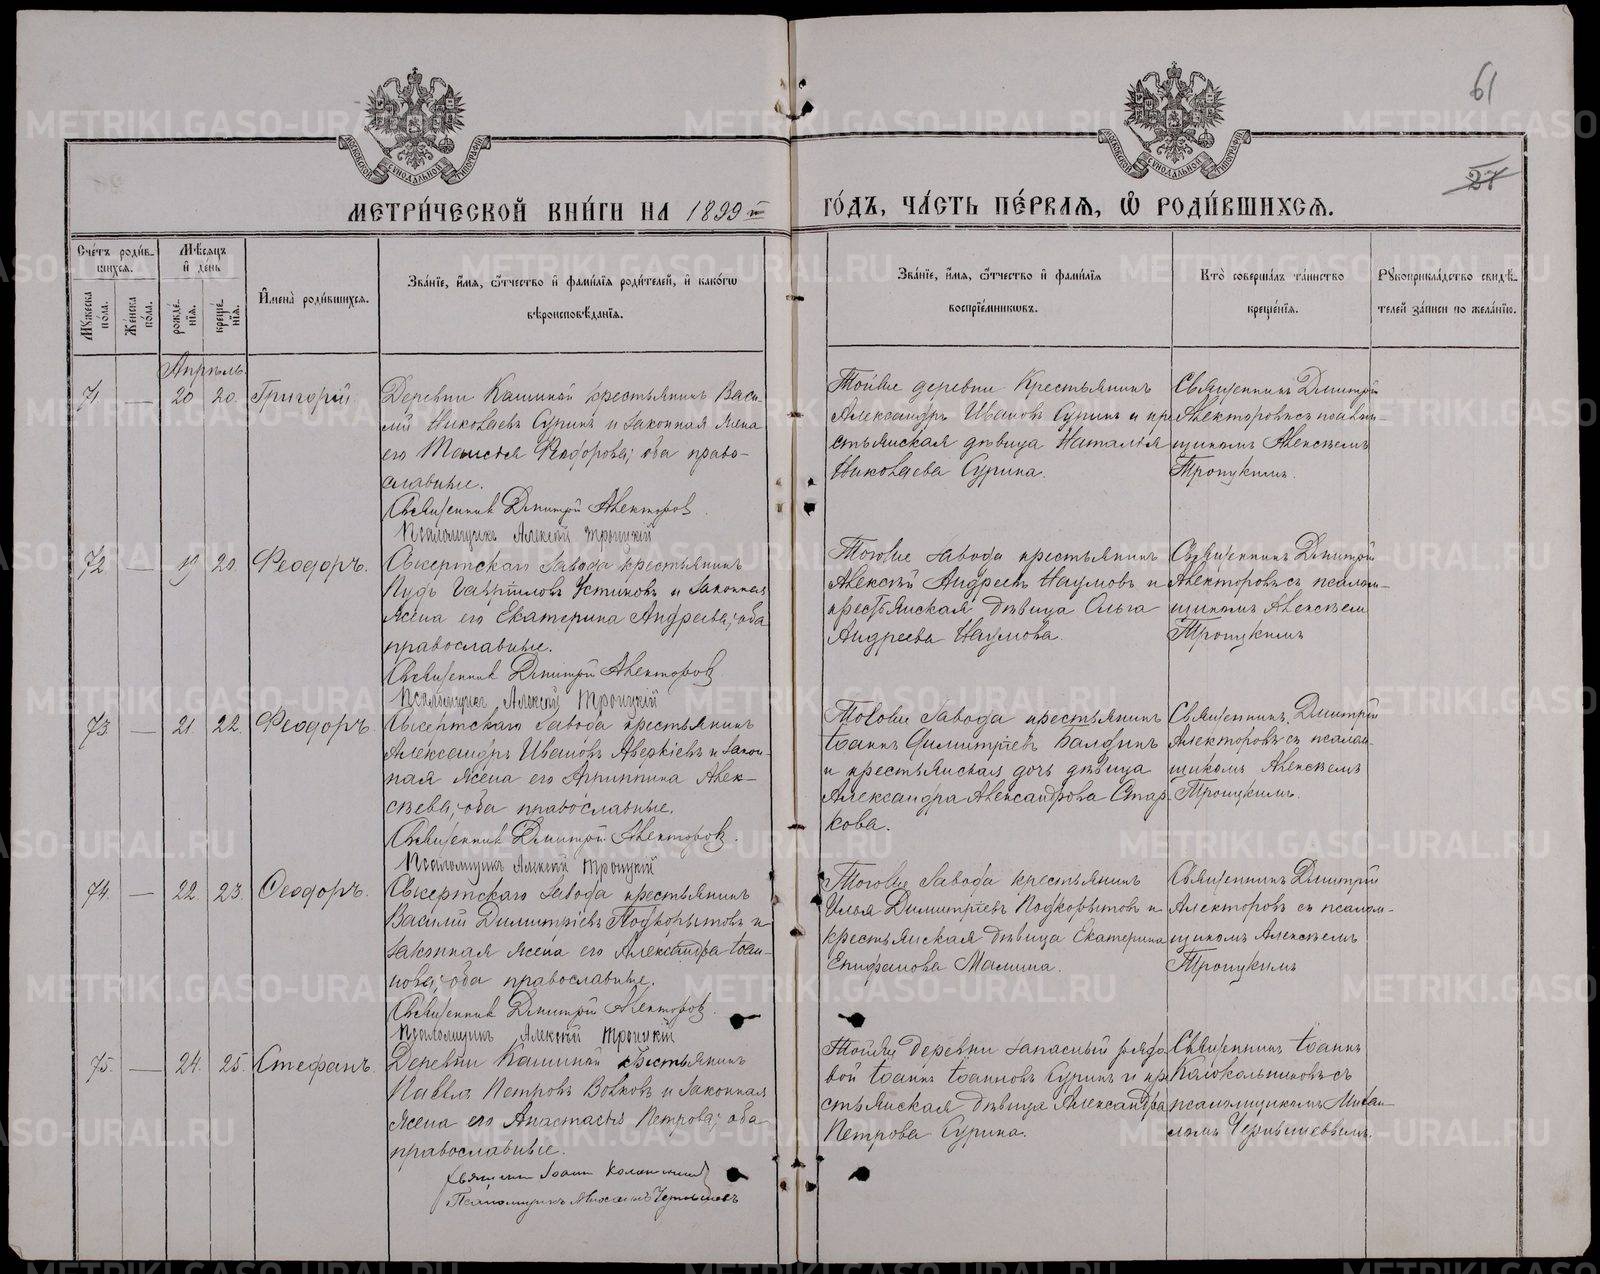 61
27
МЕТРИ́ЧЕСКОЙ КНИ́ГИ НА 1899й ГО́ДЪ, ЧА́СТЬ ПЕ́РВАЯ, Ѡ РОДИ́ВШИХСЯ.
Сче́тъ роди́вшихся.
Мѣ́сяцъ и҆ день
Му́жеска по́ла.
Же́нска по́ла.
рожде́нїя.
креще́нїя.
И҆мена̀ роди́вшихся.
Зва́нїе, и҆́мя, ѻ҆́тчество и҆ фами́лїя роди́телей, и҆ како́гѡ
вѣроисповѣ́данїя.
Зва́нїе, и҆́мя, ѻ҆́тчество и҆ фами́лїя
воспрїе́мниковъ.
Кто̀ соверша́лъ та́инство
креще́нїя.
Рꙋкоприкла́дство свидѣ́телей за́писи по жела́нїю.
Апрѣль
71 — 20 20. Григорій.
Деревни Кашиной крестьянинъ Васи-
лій Николаевъ Суринъ и законная жена
его Таисія Феодорова; оба право-
славные.
Священник Димитрій Алекторов.
Псаломщикъ Алексій Троицкій
Тойже деревни Крестьянинъ
Александръ Ивановъ Суринъ и кре
стьянская дѣвица Наталья
Николаева Сурина.
Священникъ Димитрій
Алекторовъ съ псалом
щикомъ Алексѣемъ
Троицкимъ.
72 — 19 20 Феодоръ.
Сысертскаго завода крестьянинъ
Пудъ Гавріиловъ Устиновъ и законная
жена его Екатерина Андреева; оба
православные.
Священник Димитрій Алекторов
Псаломщикъ Алексій Троицкій
Тогоже завода крестьянинъ
Алексѣй Андреевъ Наумовъ и
крестьянская дѣвица Ольга
Андреева Наумова.
Священникъ Димитрій
Алекторовъ съ псалом-
щикомъ Алексѣем
Троицкимъ
73 — 21 22. Феодоръ.
Сысертскаго завода крестьянинъ
Александръ Ивановъ Аверкіевъ и закон-
ная жена его Агриппина Алек-
сѣева; оба православные.
Священник Димитрій Алекторов.
Псаломщикъ Алексій Троицкій
Тогоже завода крестьянинъ
Іоаннъ Димитріевъ
и крестьянская дочь дѣвица
Александра Александрова Стар
кова.
Священникъ Димитрій
Алекторовъ съ псалом-
щикомъ Алексѣемъ
Троицкимъ.
74. — 22. 23. Феодоръ.
Сысертскаго завода крестьянинъ
Василій Димитріевъ Подкорытовъ и
законная жена его Александра Іоан-
нова; оба православные.
Священник Димитрій Алекторов.
Псаломщикъ Алексій Троицкій
Тогоже завода крестьянинъ
Илья Димитріевъ Подкорытовъ и
крестьянская дѣвица Екатерина
Епифанова Малина.
Священникъ Димитрій
Алекторовъ съ псалом-
щикомъ Алексѣемъ
Троицкимъ
75. — 24. 25. Стефанъ.
Деревни Кашиной крестьянинъ
Павелъ Петровъ Волковъ и законная
жена его Анастасія Петрова; оба
православные.
Священникъ Іоаннъ
Псаломщикъ Михаилъ Чернышевъ
Тойже деревни запасный рядо
вой Іоаннъ Іоанновъ Суринъ и кре
стьянская дѣвица Александра
Петрова Сурина.
Священникъ Іоаннъ
Колокольниковъ съ
псаломщикомъ Михаи-
ломъ Чернышевымъ.